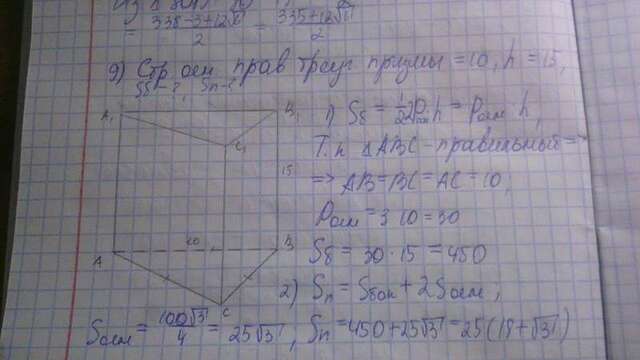 = (338-3+12√...)/2 = (335+12√...)/2
9) Стр осн прав треуг призмы = 10, h = 15,
Sб - ?, Sп - ?
A₁ B₁
1) Sб = Pосн h,
C₁
Т.к △ABC - правильный =>
15
=> AB = BC = AC = 10,
Pосн = 3·10 = 30
10
A B
Sб = 30·15 = 450
C
2) Sп = Sбок + 2Sосн;
Sосн = 100√3/4 = 25√3, Sп = 450 + 25√3 = 25(18 + √3)